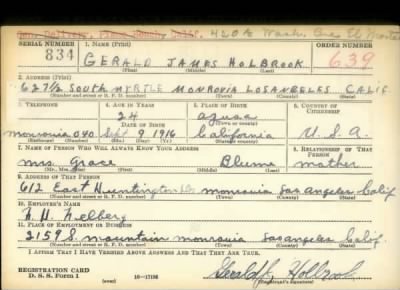 Gen. Delivery, Pismo Beach, Calif. 420½ Wash. Ave El Monte
SERIAL NUMBER 1. NAME (Print) ORDER NUMBER
834 GERALD JAMES HOLBROOK 639
(First) (Middle) (Last)
2. ADDRESS (Print)
627½ SOUTH MYRTLE MONROVIA LOS ANGELES CALIF
(Number and street or R. F. D. number) (Town) (County) (State)
3. TELEPHONE 4. AGE IN YEARS 5. PLACE OF BIRTH 6. COUNTRY OF CITIZENSHIP
24 Azusa
DATE OF BIRTH (Town or county)
monrovia 040 Sept 9 1916 California U.S.A.
(Exchange) (Number) (Mo.) (Day) (Yr.) (State or country)
7. NAME OF PERSON WHO WILL ALWAYS KNOW YOUR ADDRESS 8. RELATIONSHIP OF THAT PERSON
mrs. Grace Blume mother
(Mr., Mrs., Miss) (First) (Middle) (Last)
9. ADDRESS OF THAT PERSON
612 East Huntington Dr monrovia Los Angeles Calif
(Number and street or R. F. D. number) (Town) (County) (State)
10. EMPLOYER'S NAME
Felberg
11. PLACE OF EMPLOYMENT OR BUSINESS
2159 S. mountain monrovia Los angeles Calif.
(Number and street or R. F. D. number) (Town) (County) (State)
I AFFIRM THAT I HAVE VERIFIED ABOVE ANSWERS AND THAT THEY ARE TRUE.
REGISTRATION CARD
D. S. S. Form 1 (over) 16-17105 Gerald J. Holbrook
(Registrant's signature)